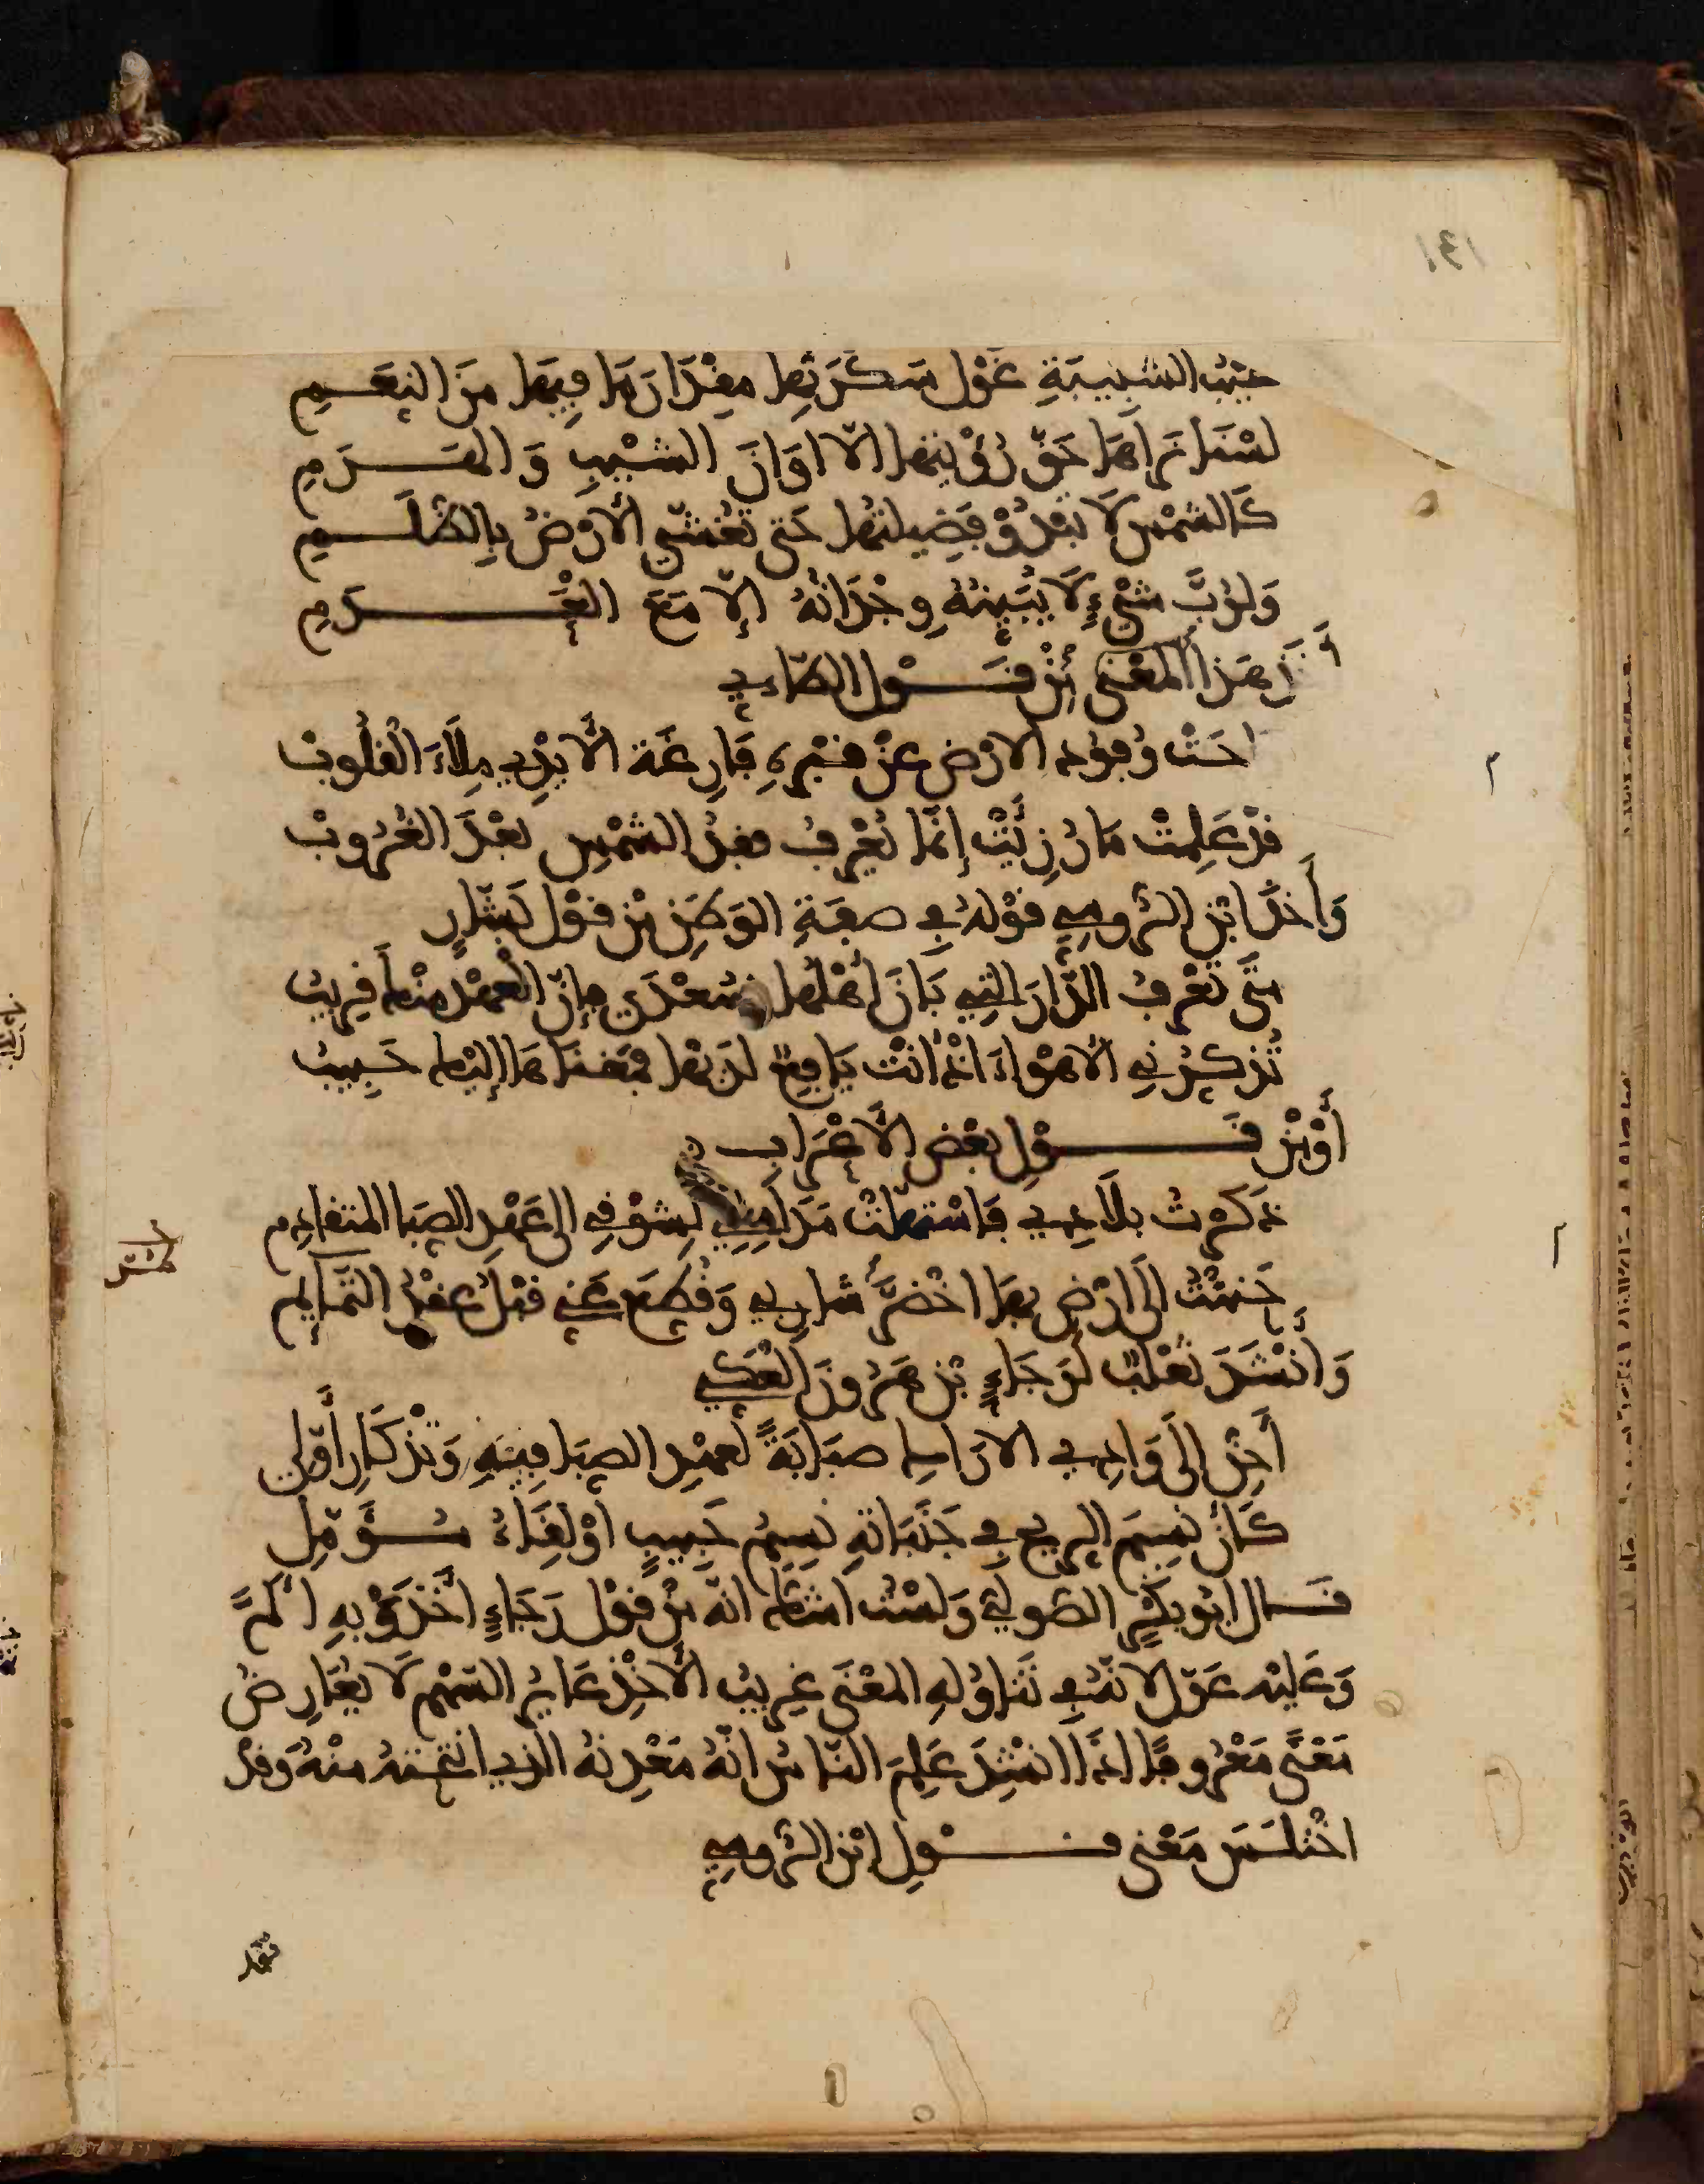 حيث الشبيبة غول سكرتها مقدار ما فيها من النعم
لسنا نراها حق رؤيتها الا اوان الشيب و الهرم
كالشمس لا تبدو فضيلتها حتى تغشى الأرض بالظلم
ولرب شيء لا يبينه وجدانه إلا مع العدم
هذا المعنى من قول الطائي
راحت وفود الارض عن قبره فارغة الأيدي ملاء القلوب
قد علمت ما رزئت إنما يعرف فقد الشمس بعد الغروب
وأخذ ابن الرومي قوله في صفة الوطن من قول بشار
متى تعرف الدار التي بان أهلها بسعدى فإن العهد منها قريب
تذكرني الأهواء اذ أنت يافع لديها فمغناها إليها حبيب
أو من قول بعض الأعراب
ذكرت بلادي فاستهلت مدامعي لشوقي الى عهد الصبا المتقادم
حننت الى ارض بها اخضر شاربي وقطع عني قبل عقد التمائم
وأنشد ثعلب لرجاء بن هرون العكي
أحن الى وادي الاراك صبابة لعهد الصبا فيه وتذكار أولي
كأن نسيم الريح في جنباته نسيم حبيب او لقاء مؤمل
قال ابو بكر الصولي ولست اشك انه من قول رجاء أخذ وبه ألم
وعليه عول لانه في تناوله المعنى غريب الأخذ عاير السهم لا يعارض
معنى معروفا اذا انشد علم الناس انه معدنه الذي انتحته منه وقد
اختلس معنى قول ابن الرومي